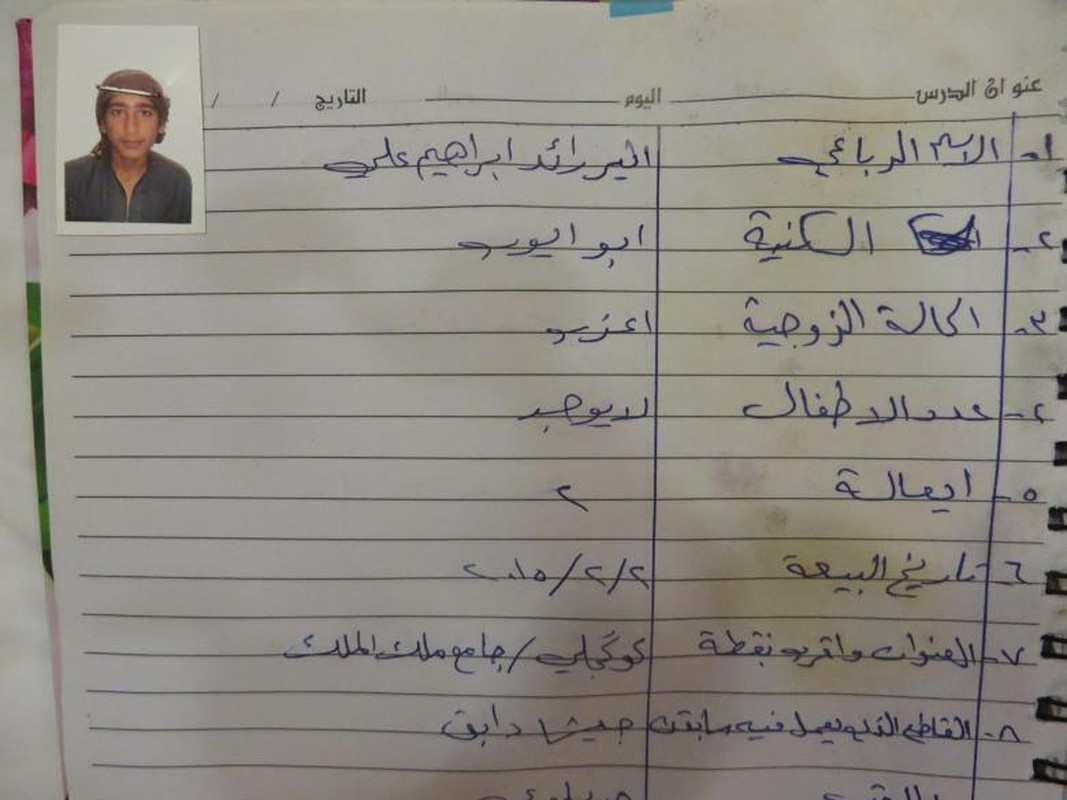 عنوان الدرس اليوم التاريخ / /
١- الاسم الرباعي رائد ابراهيم علي
٢- الكنية ابو ايوب
٣- الحالة الزوجية اعزب
٤- عدد الاطفال لا يوجد
٥- ٢
٦- تاريخ البيعة ٢/٢/٢٠١٥
٧- العنوان واقرب نقطة كوكجلي / جامع ملك الملك
٨- القاطع الذي يعمل فيه سابقا جيش دابق